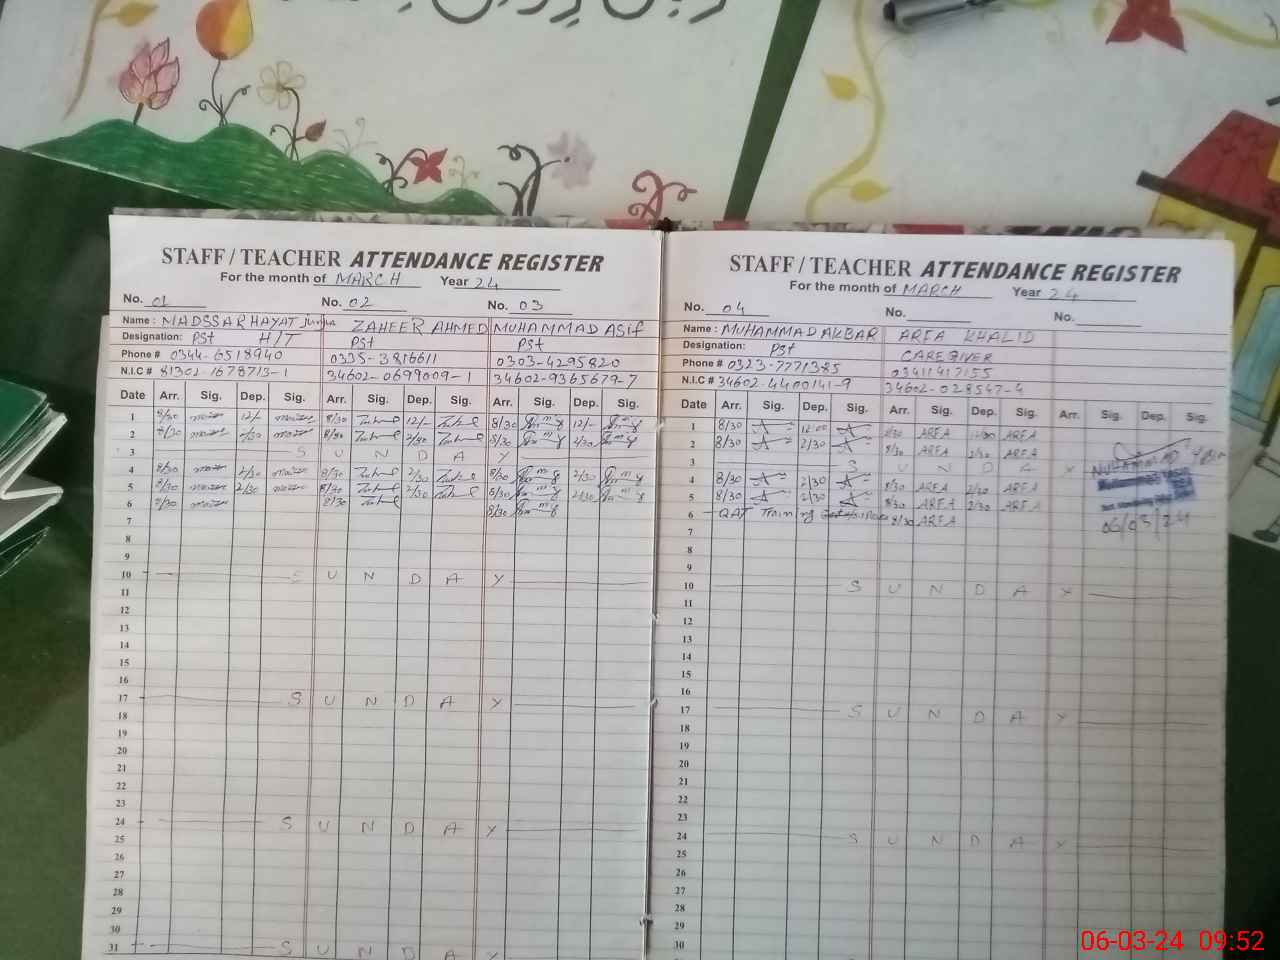 STAFF / TEACHER ATTENDANCE REGISTER
For the month of MARCH Year 24
No. 01 No. 02 No. 03
Name : MADSSAR HAYAT ZAHEER AHMED MUHAMMAD ASIF
Designation: PST H/T PST PST
Phone # 0344-6518940 0335-3816611 0303-4295820
N.I.C # 81302-1678713-1 34602-0699009-1 34602-9365679-7
Date Arr. Sig. Dep. Sig. Arr. Sig. Dep. Sig. Arr. Sig. Dep. Sig.
1 8/30 12/- 8/30 12/- 8/30 12/-
2 8/30 2/30 8/30 2/30 8/30 2/30
3 S U N D A Y
4 8/30 2/30 8/30 2/30 8/30 2/30
5 8/30 2/30 8/30 2/30 8/30 2/30
6 8/30 8/30 8/30
7
8
9
10 S U N D A Y
11
12
13
14
15
16
17 S U N D A Y
18
19
20
21
22
23
24 S U N D A Y
25
26
27
28
29
30
31 S U N D A Y
STAFF / TEACHER ATTENDANCE REGISTER
For the month of MARCH Year 24
No. 04 No. No.
Name : MUHAMMAD AKBAR AREA KHALID
Designation: PST CAREGIVER
Phone # 0323-7771385 03411417155
N.I.C # 34602-4400141-9 34602-028547-4
Date Arr. Sig. Dep. Sig. Arr. Sig. Dep. Sig. Arr. Sig. Dep. Sig.
1 8/30 12:00 8/30 AREA 12/00 AREA
2 8/30 2/30 8/30 AREA 2/30 AREA
3 S U N D A Y
4 8/30 2/30 8/30 AREA 2/30 AREA
5 8/30 2/30 8/30 AREA 2/30 AREA
6 QAT Training 8/30 AREA
MUHAMMAD
06/03/24
7
8
9
10 S U N D A Y
11
12
13
14
15
16
17 S U N D A Y
18
19
20
21
22
23
24 S U N D A Y
25
26
27
28
29
30
06-03-24 09:52